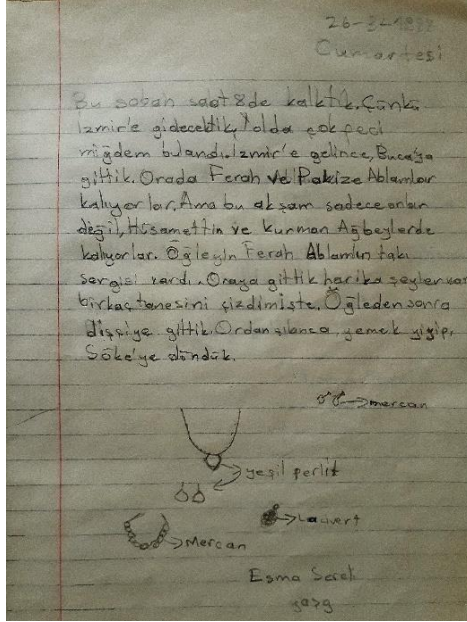 Cumartesi
Bu sabah saat 8de kalktık. Çünkü
İzmir'e gidecektik. Yolda çok feci
miğdem bulandı. İzmir'e gelince, Buca'ya
gittik. Orada Ferah ve Pakize Ablamlar
kalıyorlar. Ama bu akşam sadece onlar
değil, Hüsamettin ve Kurman Ağbeylerde
kalıyorlar. Öğleyin Ferah Ablamın takı
sergisi vardı. Oraya gittik harika şeyler var
birkaç tanesini çizdim işte. Öğleden sonra
dişçiye gittik. Ordan çıkınca, yemek yiyip,
Söke'ye döndük.
mercan
yeşil perlit
Lauvert
Mercan
Esma
yaş 9